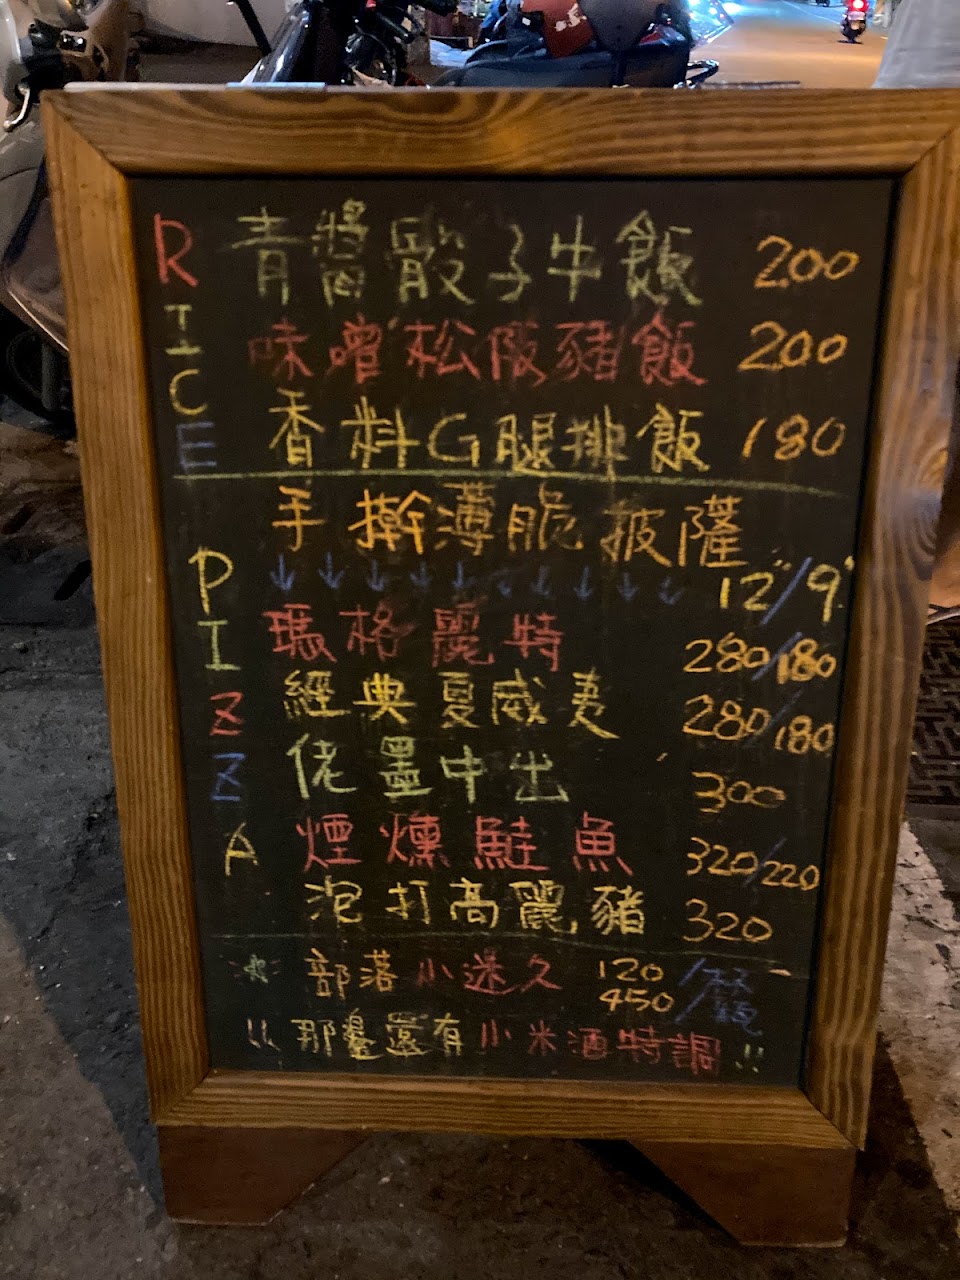 RICE
青醬骰子牛飯 200
味噌松阪豬飯 200
香料G腿排飯 180
PIZZA
手擀薄脆披薩
↓↓↓↓↓↓↓↓↓↓ 12"/9"
瑪格麗特 280/180
經典夏威夷 280/180
佬墨中出 300
煙燻鮭魚 320/220
泡打高麗豬 320
部落小迷久 120/杯
450/瓶
!! 那邊還有小米酒特調!!